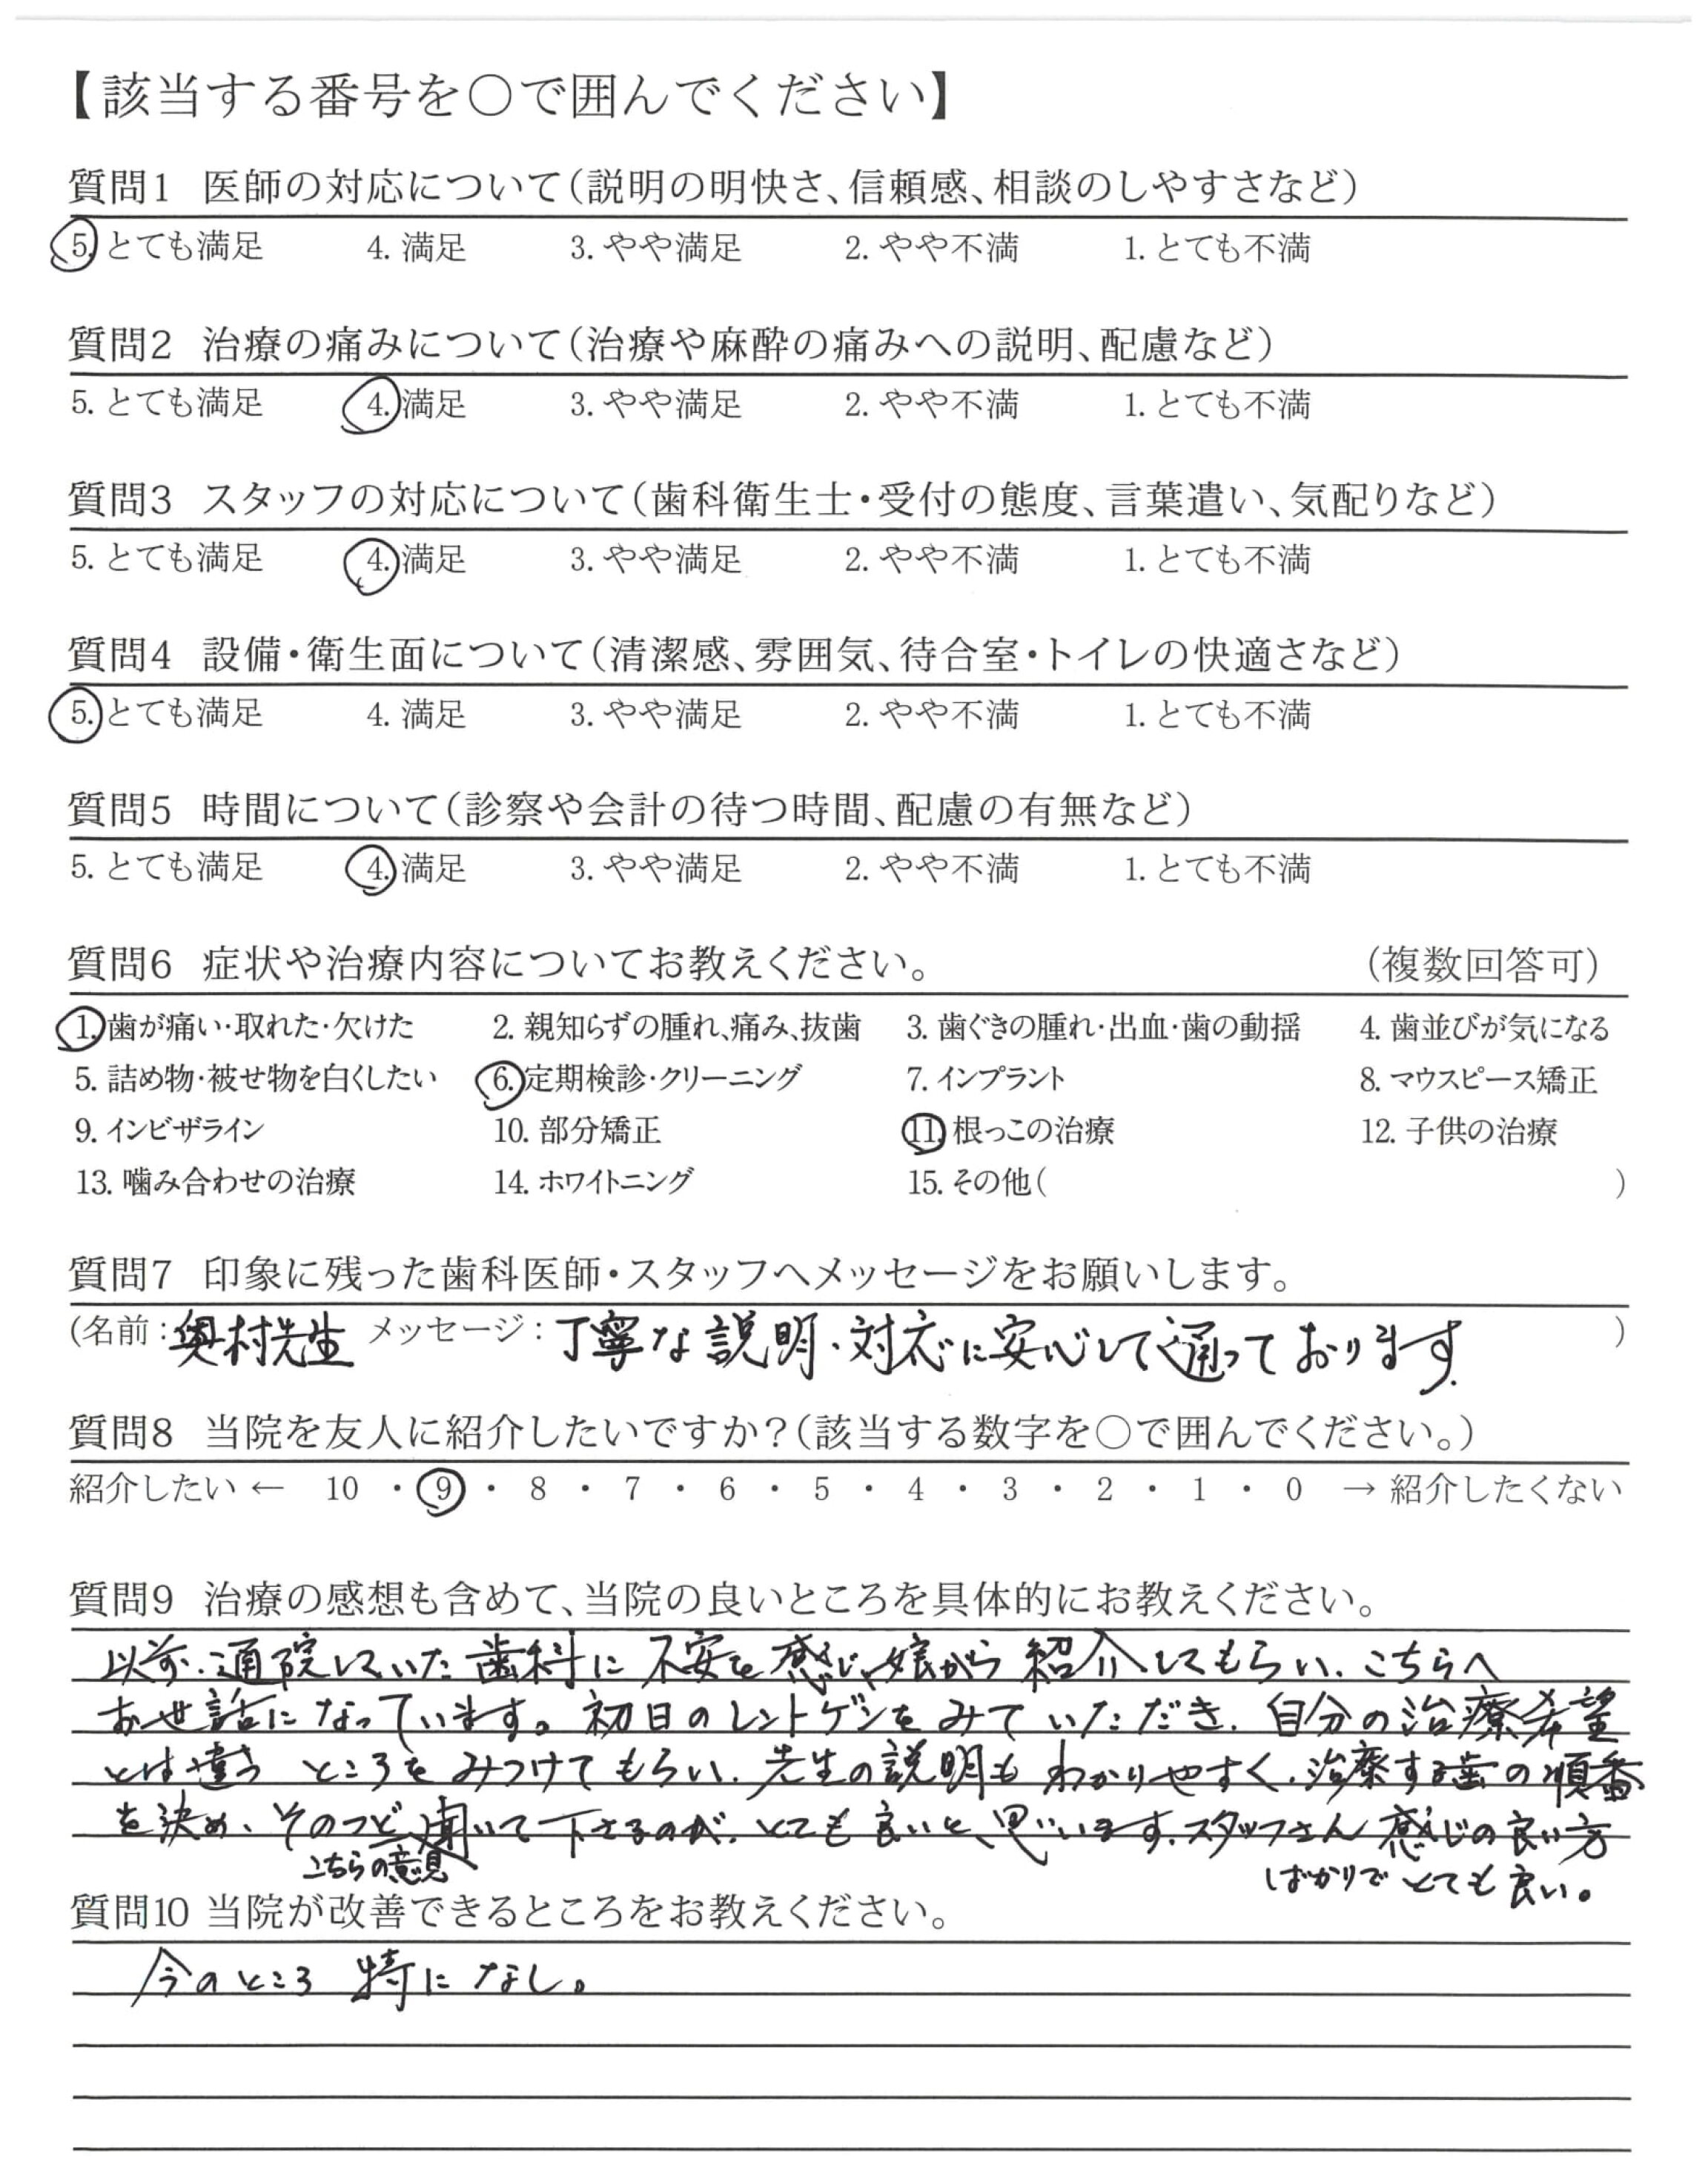 【該当する番号を○で囲んでください】
質問1 医師の対応について(説明の明快さ、信頼感、相談のしやすさなど)
5. とても満足 4. 満足 3. やや満足 2. やや不満 1. とても不満
質問2 治療の痛みについて(治療や麻酔の痛みへの説明、配慮など)
5. とても満足 4. 満足 3. やや満足 2. やや不満 1. とても不満
質問3 スタッフの対応について(歯科衛生士・受付の態度、言葉遣い、気配りなど)
5. とても満足 4. 満足 3. やや満足 2. やや不満 1. とても不満
質問4 設備・衛生面について(清潔感、雰囲気、待合室・トイレの快適さなど)
5. とても満足 4. 満足 3. やや満足 2. やや不満 1. とても不満
質問5 時間について(診察や会計の待つ時間、配慮の有無など)
5. とても満足 4. 満足 3. やや満足 2. やや不満 1. とても不満
質問6 症状や治療内容についてお教えください。 (複数回答可)
1. 歯が痛い・取れた・欠けた 2. 親知らずの腫れ、痛み、抜歯 3. 歯ぐきの腫れ・出血・歯の動揺 4. 歯並びが気になる
5. 詰め物・被せ物を白くしたい 6. 定期検診・クリーニング 7. インプラント 8. マウスピース矯正
9. インビザライン 10. 部分矯正 11. 根っこの治療 12. 子供の治療
13. 噛み合わせの治療 14. ホワイトニング 15. その他( )
質問7 印象に残った歯科医師・スタッフへメッセージをお願いします。
(名前:奥村先生 メッセージ:丁寧な説明・対応に安心して通っております。)
質問8 当院を友人に紹介したいですか?(該当する数字を○で囲んでください。)
紹介したい ← 10 ・ 9 ・ 8 ・ 7 ・ 6 ・ 5 ・ 4 ・ 3 ・ 2 ・ 1 ・ 0 → 紹介したくない
質問9 治療の感想も含めて、当院の良いところを具体的にお教えください。
以前、通院していた歯科に不安を感じ、娘から紹介してもらい、こちらへ
お世話になっています。初日のレントゲンをみていただき、自分の治療希望
とは違うところをみつけてもらい、先生の説明もわかりやすく、治療する歯の順番
を決め、そのつど聞いて下さるのが、とても良いと思います。スタッフさん感じの良い方
こちらの意見 ばかりでとても良い。
質問10 当院が改善できるところをお教えください。
今のところ特になし。